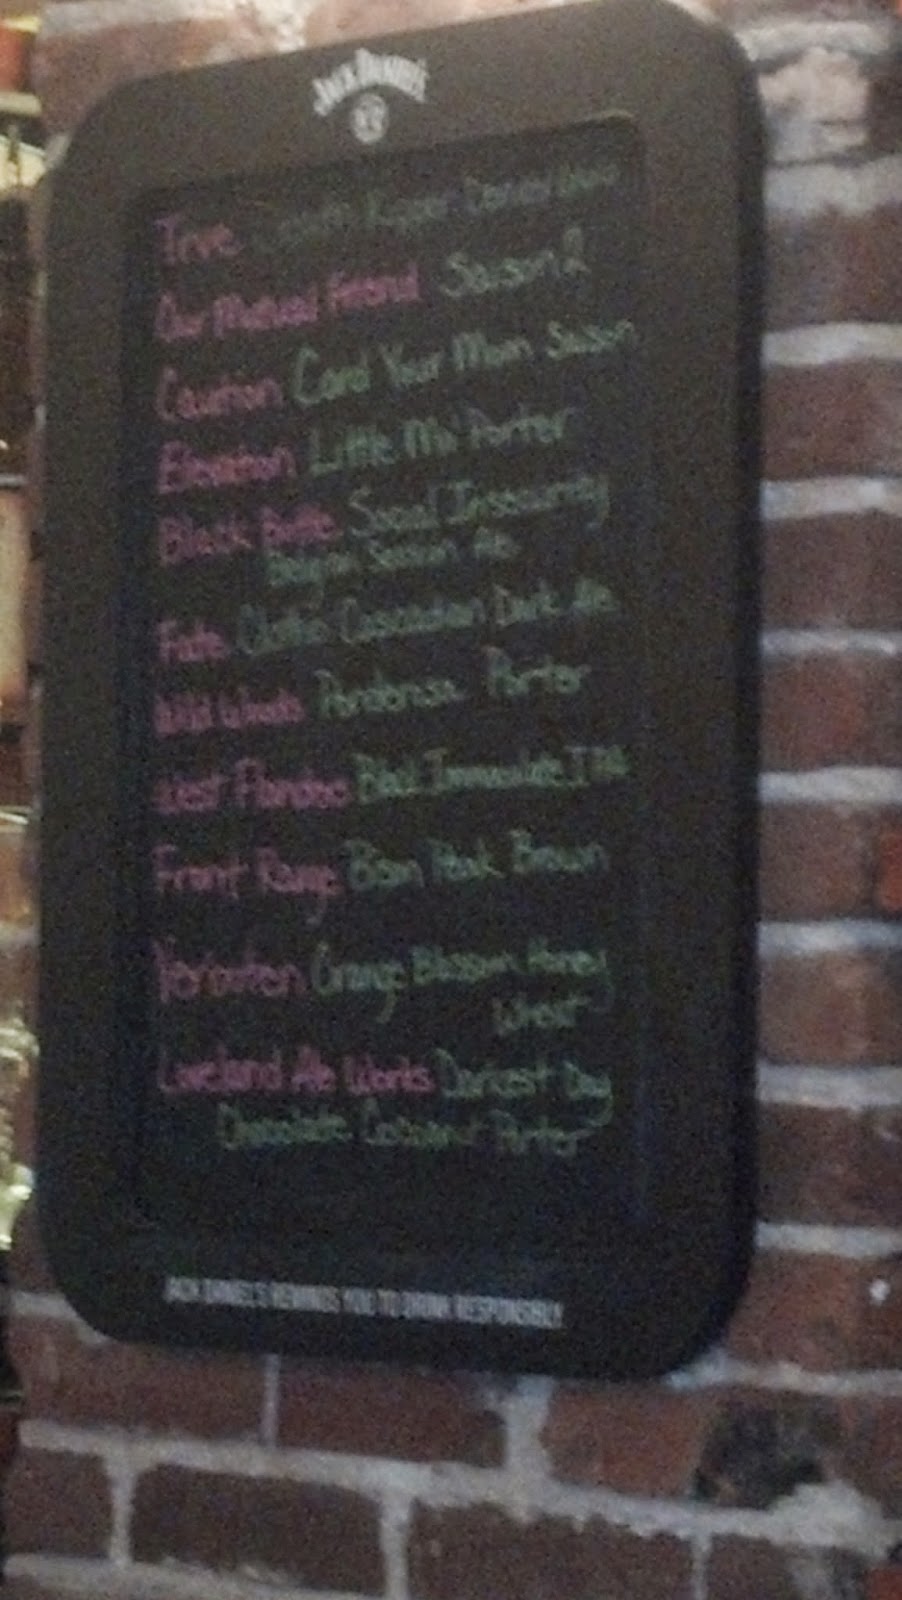 JACK DANIEL'S
Trve
Our Mutual Friend Saison 2
Caution Card Your Mom Saison
Elevation Little Mo' Porter
Black Bottle Social Insecurity
Belgian Session Ale
Fate Cascadian Dark Ale
Wild Woods Ponderosa Porter
West Flanders Black Immaculate IPA
Front Range Bison Peak Brown
Verboten Orange Blossom Honey
Wheat
Loveland Ale Works Darkest Day
Chocolate Coconut Porter
JACK DANIEL'S REMINDS YOU TO DRINK RESPONSIBLY.